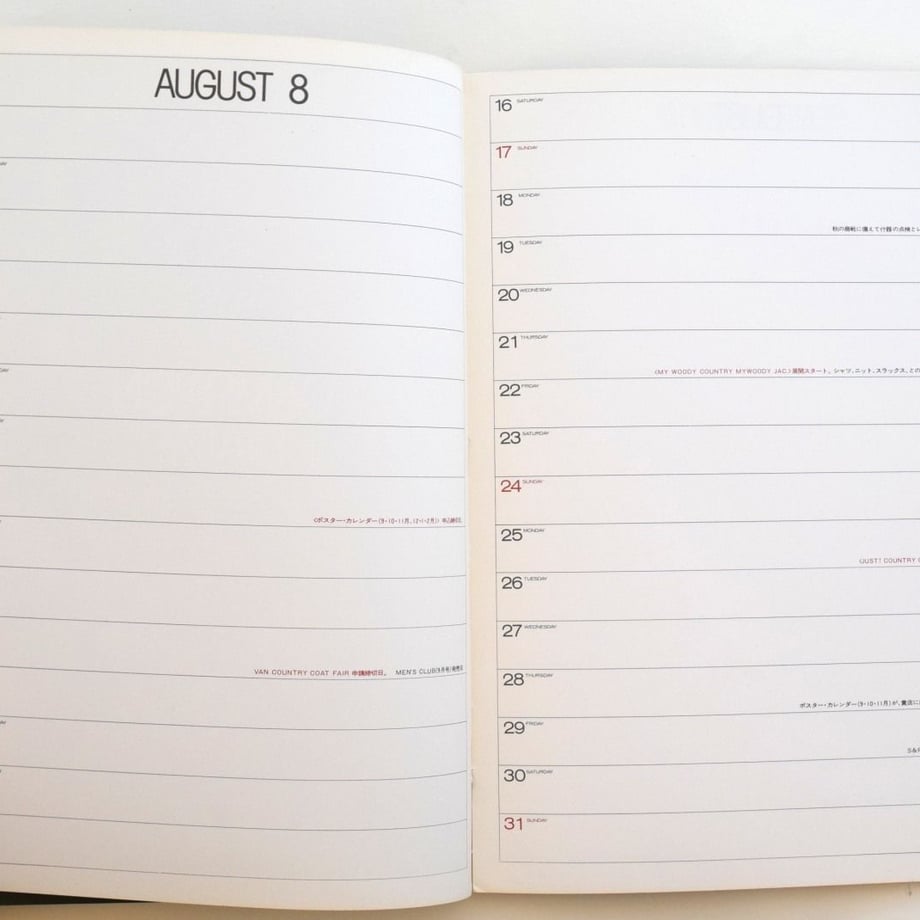 AUGUST 8
〈ポスター・カレンダー(9・10・11月、12・1・2月)〉申込締切日。
VAN COUNTRY COAT FAIR 申請締切日。 MEN'S CLUB(9月号)発売日
16 SATURDAY
17 SUNDAY
18 MONDAY
秋の商戦に備えて什器の点検と
19 TUESDAY
20 WEDNESDAY
21 THURSDAY
〈MY WOODY COUNTRY MYWOODY JAC.〉展開スタート。シャツ、ニット、スラックス、との
22 FRIDAY
23 SATURDAY
24 SUNDAY
25 MONDAY
〈JUST! COUNTRY
26 TUESDAY
27 WEDNESDAY
28 THURSDAY
ポスター・カレンダー(9・10・11月)が、貴店に
29 FRIDAY
30 SATURDAY
31 SUNDAY